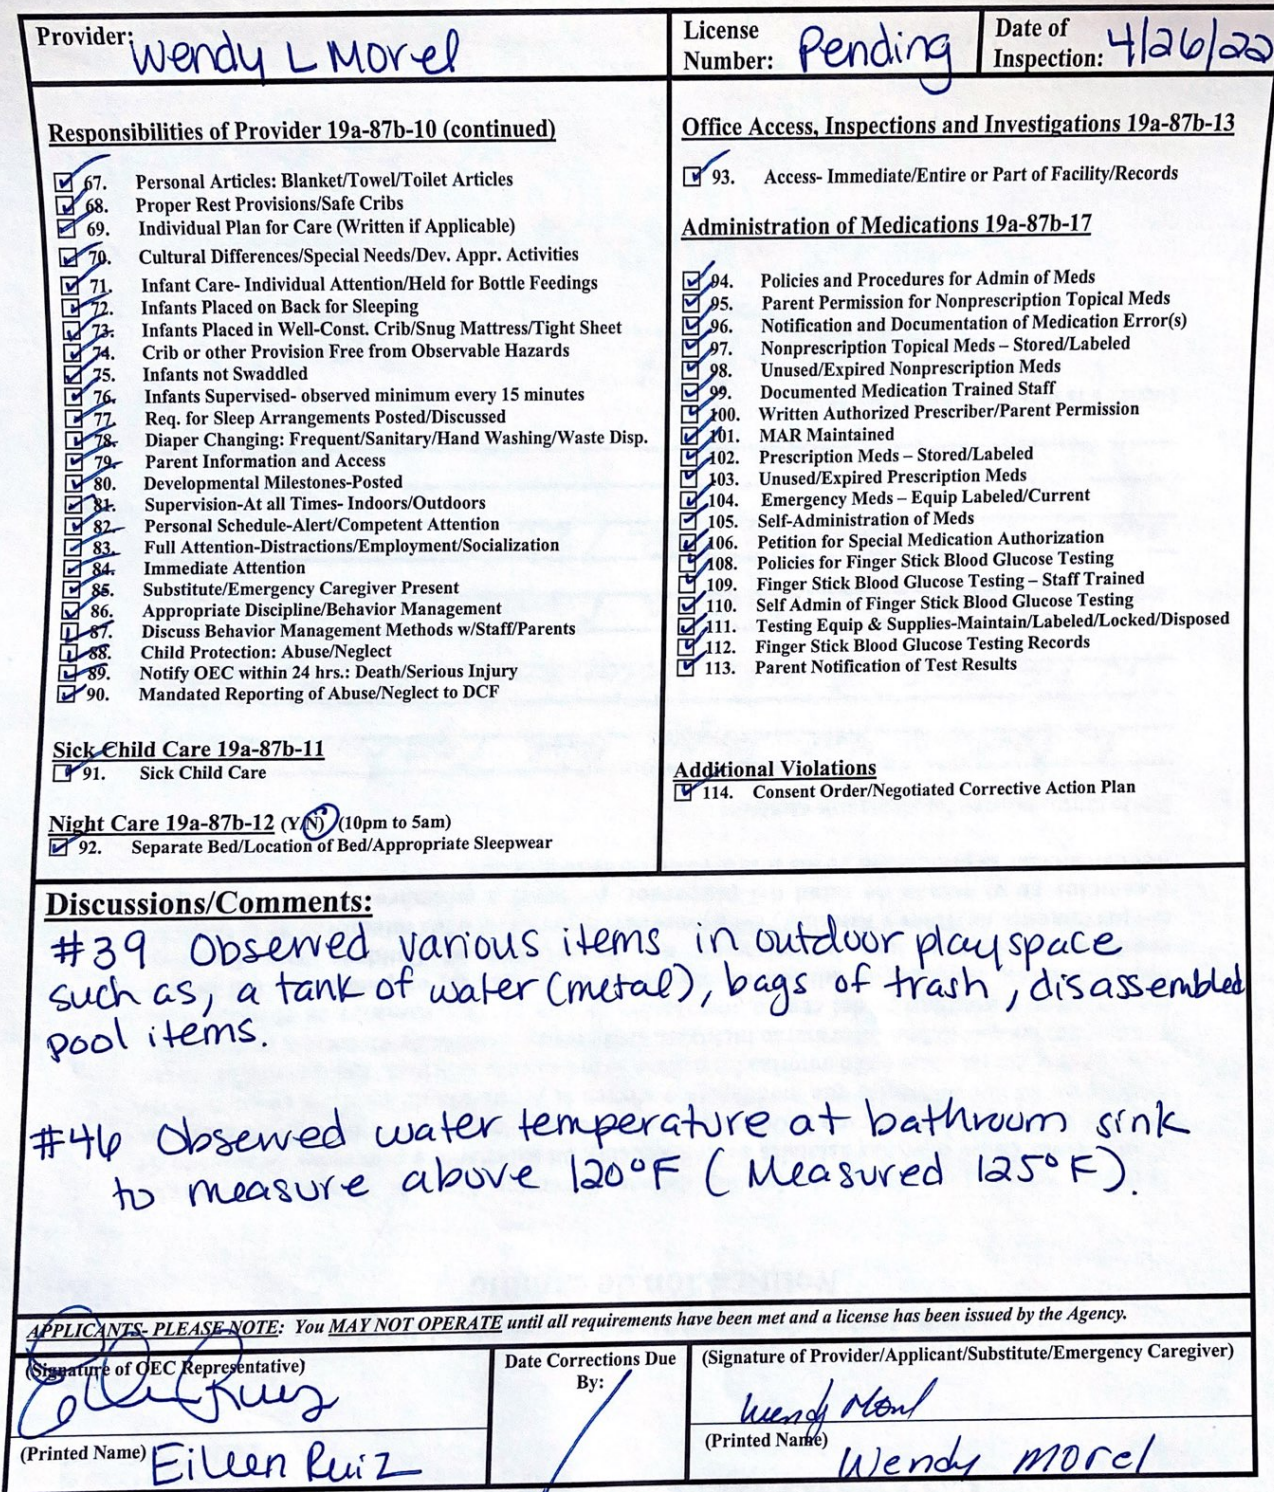 Provider: Wendy L Morel
License Number: Pending
Date of Inspection: 4/26/22
Responsibilities of Provider 19a-87b-10 (continued)
67. Personal Articles: Blanket/Towel/Toilet Articles
68. Proper Rest Provisions/Safe Cribs
69. Individual Plan for Care (Written if Applicable)
70. Cultural Differences/Special Needs/Dev. Appr. Activities
71. Infant Care- Individual Attention/Held for Bottle Feedings
72. Infants Placed on Back for Sleeping
73. Infants Placed in Well-Const. Crib/Snug Mattress/Tight Sheet
74. Crib or other Provision Free from Observable Hazards
75. Infants not Swaddled
76. Infants Supervised- observed minimum every 15 minutes
77. Req. for Sleep Arrangements Posted/Discussed
78. Diaper Changing: Frequent/Sanitary/Hand Washing/Waste Disp.
79. Parent Information and Access
80. Developmental Milestones-Posted
81. Supervision-At all Times- Indoors/Outdoors
82. Personal Schedule-Alert/Competent Attention
83. Full Attention-Distractions/Employment/Socialization
84. Immediate Attention
85. Substitute/Emergency Caregiver Present
86. Appropriate Discipline/Behavior Management
87. Discuss Behavior Management Methods w/Staff/Parents
88. Child Protection: Abuse/Neglect
89. Notify OEC within 24 hrs.: Death/Serious Injury
90. Mandated Reporting of Abuse/Neglect to DCF
Sick Child Care 19a-87b-11
91. Sick Child Care
Night Care 19a-87b-12 (Y/N) (10pm to 5am)
92. Separate Bed/Location of Bed/Appropriate Sleepwear
Office Access, Inspections and Investigations 19a-87b-13
93. Access- Immediate/Entire or Part of Facility/Records
Administration of Medications 19a-87b-17
94. Policies and Procedures for Admin of Meds
95. Parent Permission for Nonprescription Topical Meds
96. Notification and Documentation of Medication Error(s)
97. Nonprescription Topical Meds – Stored/Labeled
98. Unused/Expired Nonprescription Meds
99. Documented Medication Trained Staff
100. Written Authorized Prescriber/Parent Permission
101. MAR Maintained
102. Prescription Meds – Stored/Labeled
103. Unused/Expired Prescription Meds
104. Emergency Meds – Equip Labeled/Current
105. Self-Administration of Meds
106. Petition for Special Medication Authorization
108. Policies for Finger Stick Blood Glucose Testing
109. Finger Stick Blood Glucose Testing – Staff Trained
110. Self Admin of Finger Stick Blood Glucose Testing
111. Testing Equip & Supplies-Maintain/Labeled/Locked/Disposed
112. Finger Stick Blood Glucose Testing Records
113. Parent Notification of Test Results
Additional Violations
114. Consent Order/Negotiated Corrective Action Plan
Discussions/Comments:
#39 Observed various items in outdoor play space
such as, a tank of water (metal), bags of trash, disassembled
pool items.
#46 Observed water temperature at bathroom sink
to measure above 120°F (Measured 125°F).
APPLICANTS- PLEASE NOTE: You MAY NOT OPERATE until all requirements have been met and a license has been issued by the Agency.
(Signature of OEC Representative)
(Printed Name) Eileen Ruiz
Date Corrections Due
By:
(Signature of Provider/Applicant/Substitute/Emergency Caregiver)
Wendy Morel
(Printed Name)
Wendy Morel